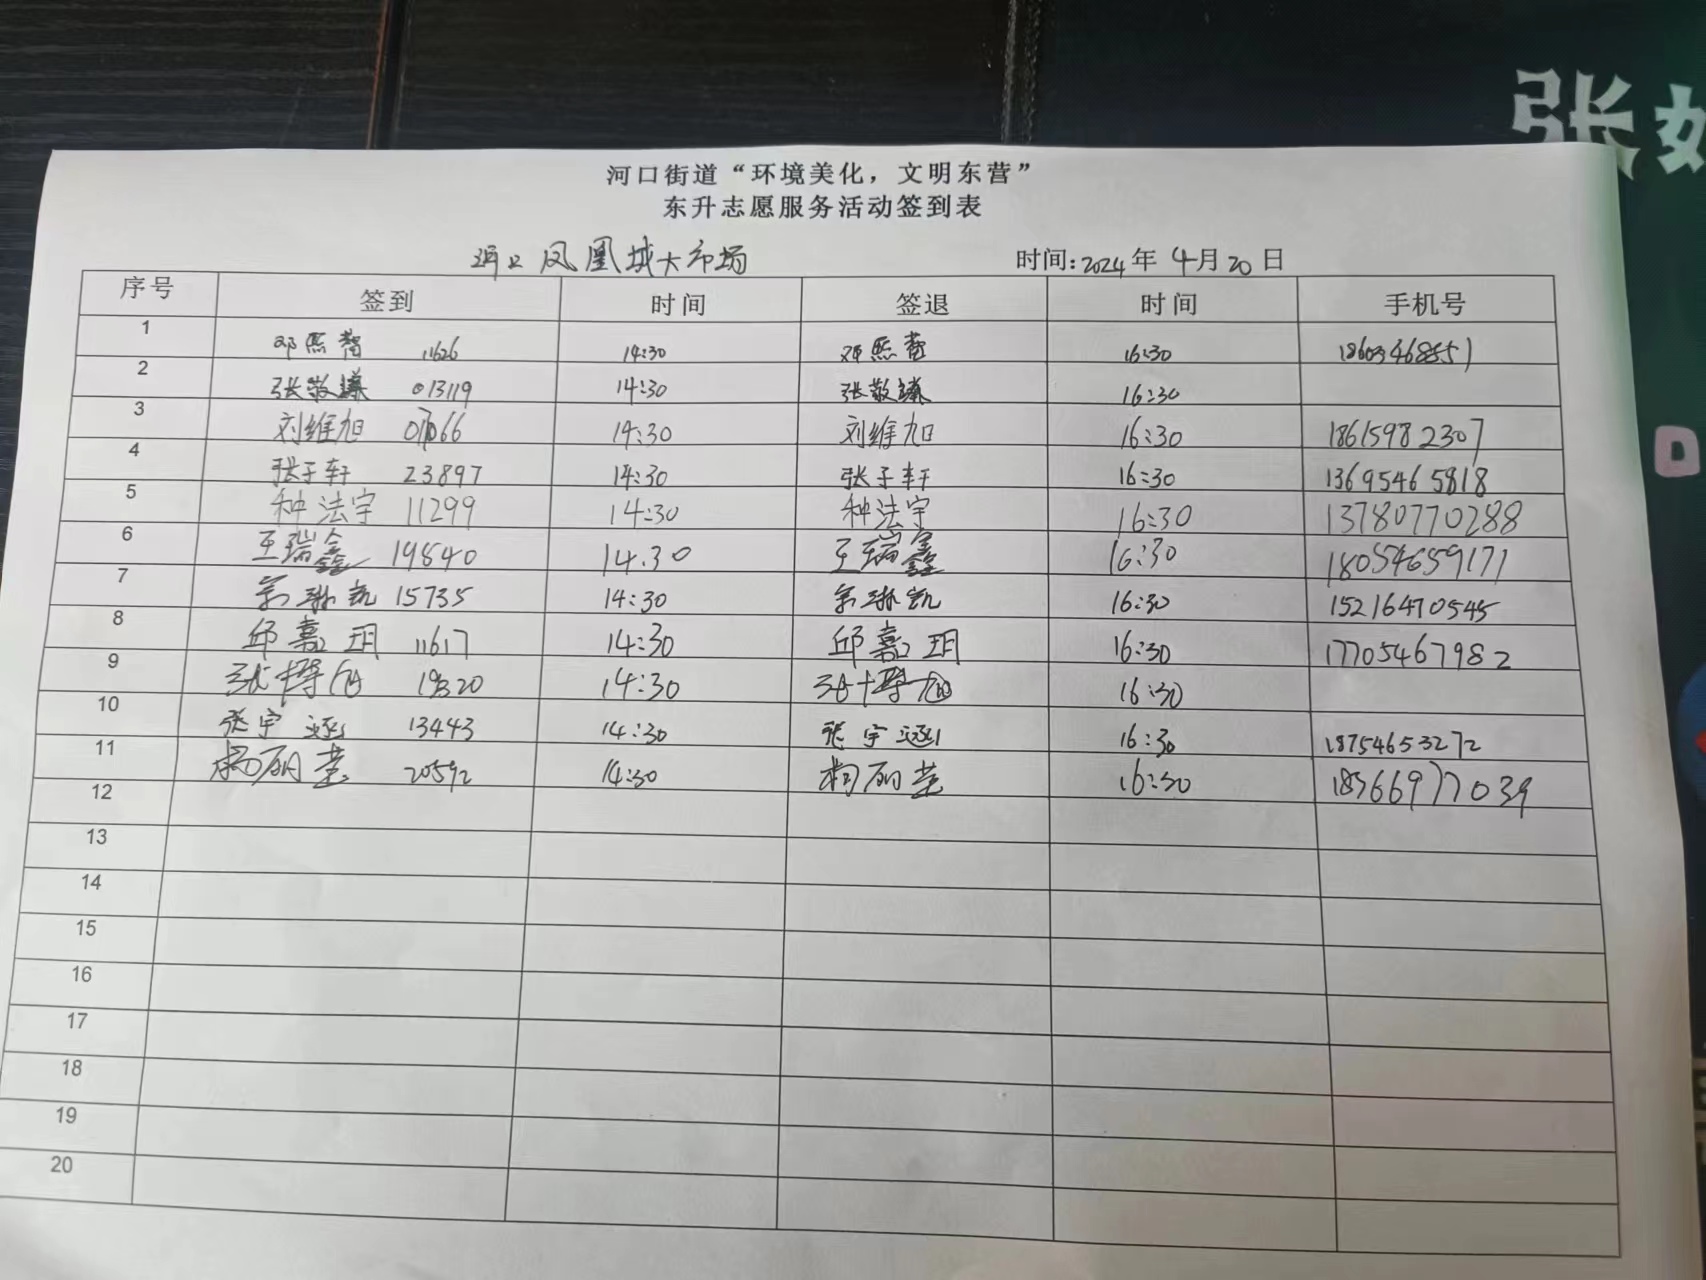 张
河口街道“环境美化，文明东营”
东升志愿服务活动签到表
河口凤凰城大市场 时间:2024年 4月20日
序号 签到 时间 签退 时间 手机号
1 邓熙哲 11626 14:30 邓熙哲 16:30 18603468551
2 张敬臻 013119 14:30 张敬臻 16:30
3 刘维旭 14:30 刘维旭 16:30 18615982307
4 张子轩 23897 14:30 张子轩 16:30 13695465818
5 种法宇 11299 14:30 种法宇 16:30 13780770288
6 王瑞鑫 19840 14:30 王瑞鑫 16:30 18054659171
7 琳凯 15735 14:30 琳凯 16:30 15216470545
8 邱嘉玥 11617 14:30 邱嘉玥 16:30 17705467982
9 张博 19320 14:30 张博 16:30
10 张宇涵 13443 14:30 张宇涵 16:30 18754653272
11 杨丽荣 20592 14:30 杨丽荣 16:30 18366977039
12
13
14
15
16
17
18
19
20